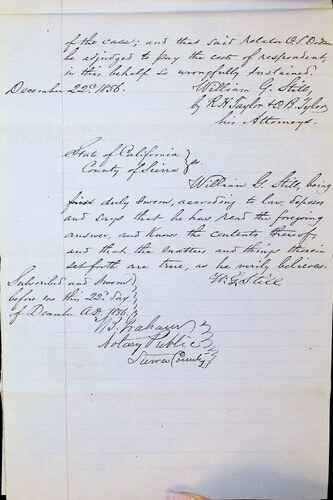 of the case; and that said relator C. S. Dodson
be adjudged to pay the cost of respondent,
in this behalf so wrongfully sustained.
December 22d 1856. William G. Still,
by R. H. Taylor & B. Tyler,
his Attorneys.
State of California }
County of Sierra } ss.
William G. Still, being
first duly sworn, according to law, deposes
and says that he has read the foregoing
answer, and knows the contents thereof,
and that the matters and things therein
set forth are true, as he verily believes.
Subscribed and sworn } W. G. Still
before me this 22d day
of December A.D. 1856.
Graham
Notary Public
Sierra County